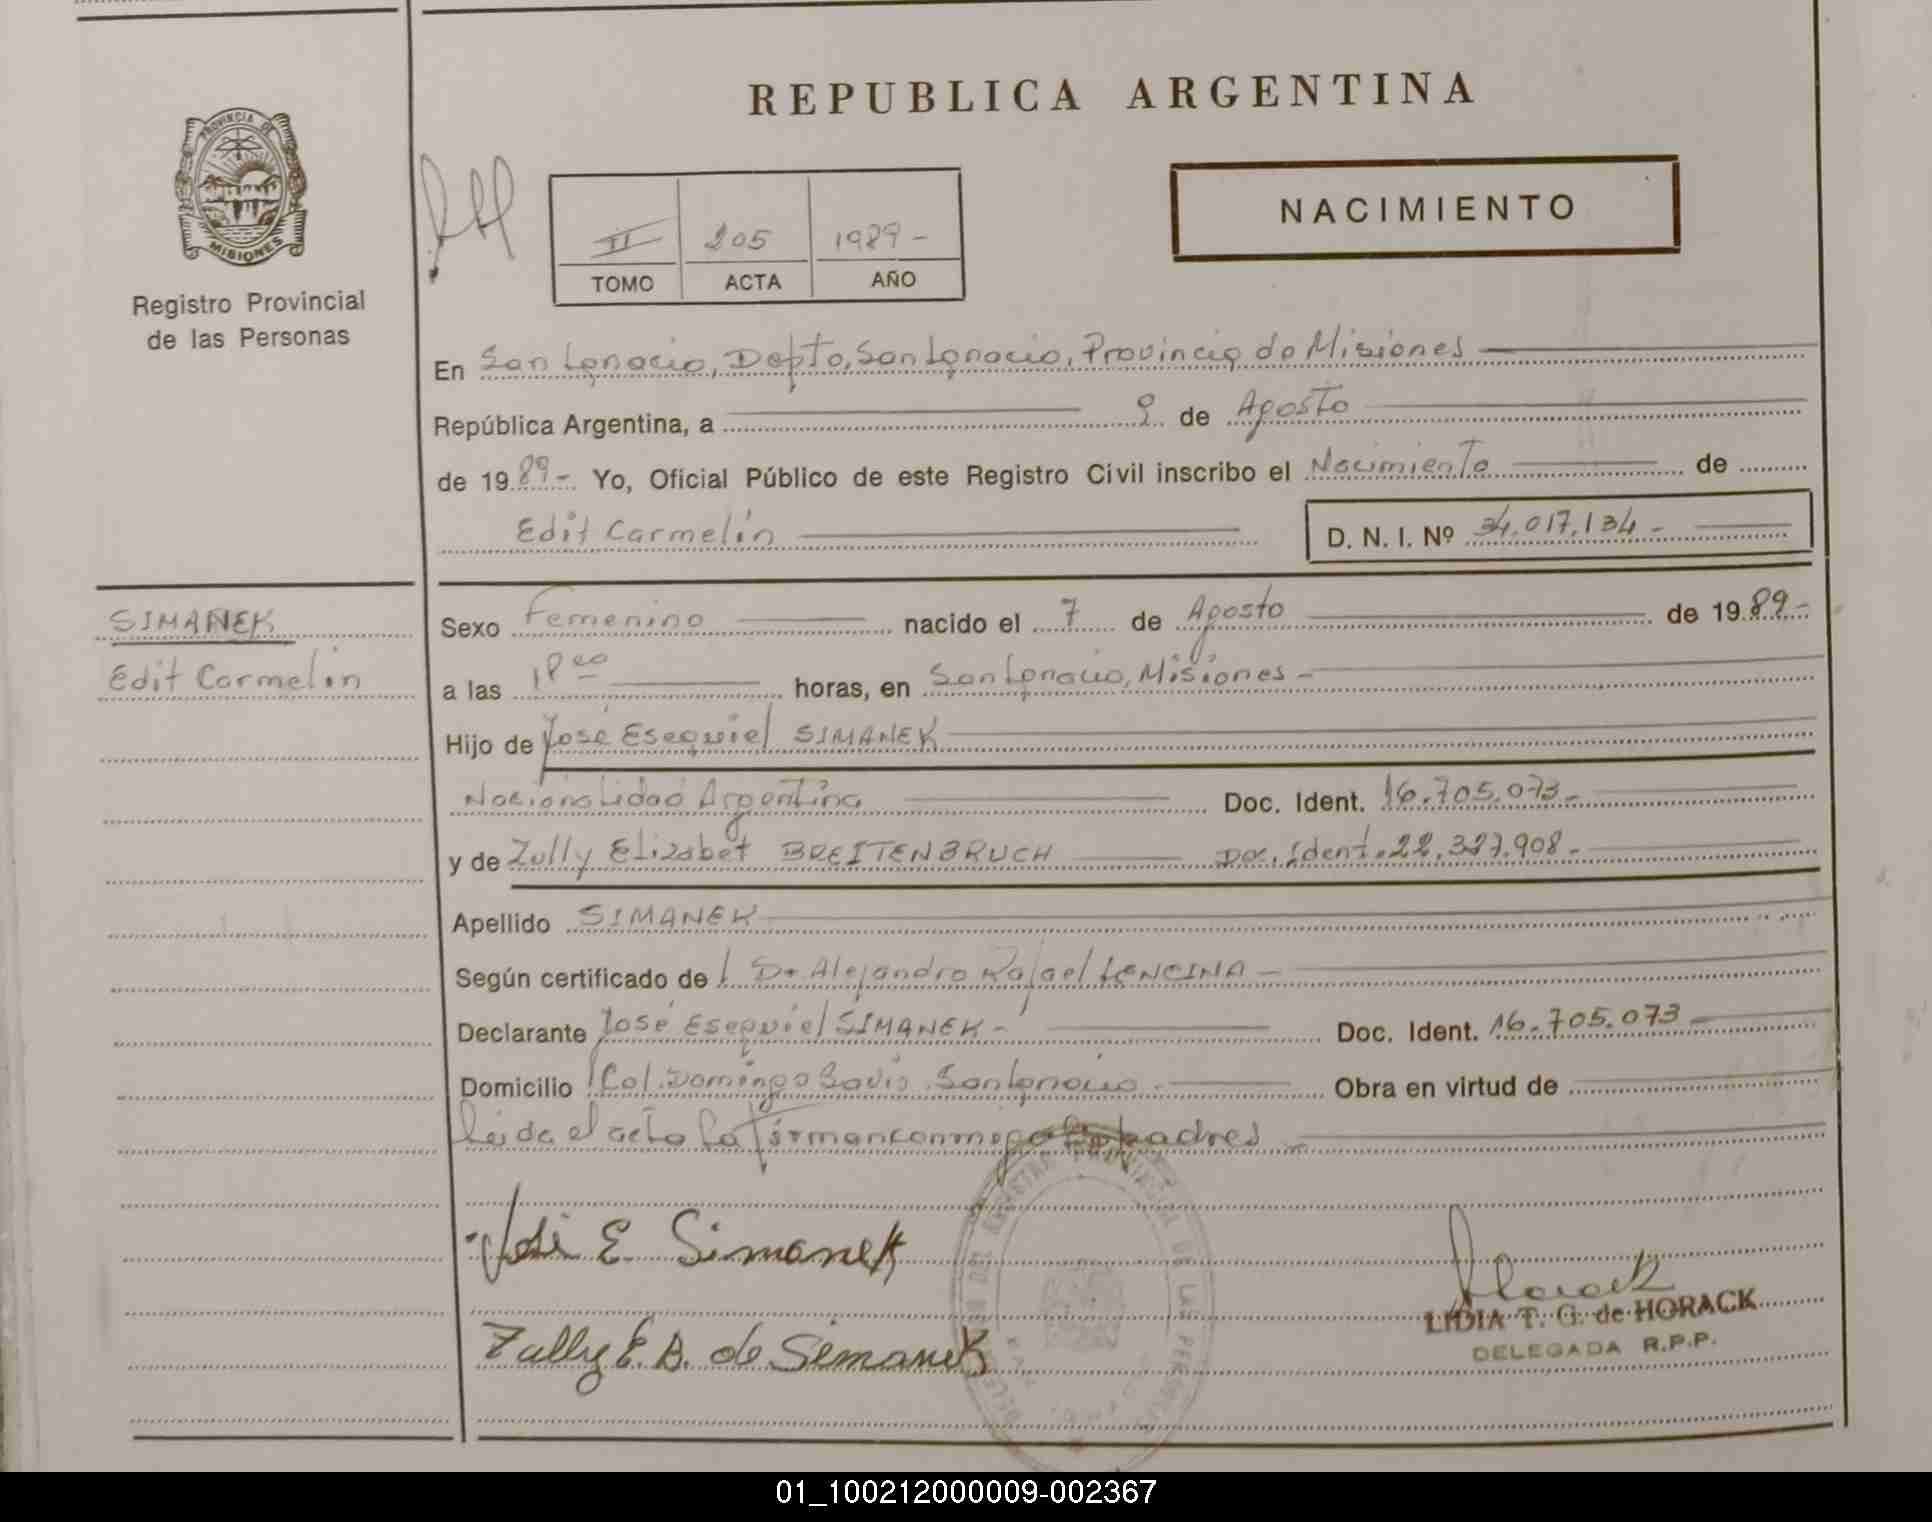 REPUBLICA ARGENTINA
PROVINCIA DE
MISIONES
Registro Provincial
de las Personas
II 205 1989 -
TOMO ACTA AÑO
NACIMIENTO
En San Ignacio, Depto, San Ignacio, Provincia de Misiones
República Argentina, a 9 de Agosto
de 19 89- Yo, Oficial Público de este Registro Civil inscribo el Nacimiento de
Edit Carmelin
D. N. I. Nº 34.017.134 -
SIMANEK
Edit Carmelin
Sexo Femenino nacido el 7 de Agosto de 19 89-
a las 18 00 horas, en San Ignacio, Misiones -
Hijo de José Esequiel SIMANEK
Nacionalidad Argentina Doc. Ident. 16.705.073-
y de Zully Elizabet BREITENBRUCH Doc. Ident. 22.327.908-
Apellido SIMANEK
Según certificado de l Dr Alejandro Rafael LENCINA -
Declarante José Esequiel SIMANEK - Doc. Ident. 16.705.073
Domicilio Col. Domingo Savio. San Ignacio - Obra en virtud de
Leida el acta la firman conmigo padres
José E. Simanek
Zully E. B. de Simanek
Horack
LIDIA T. G. de HORACK
DELEGADA R.P.P.
01_100212000009-002367